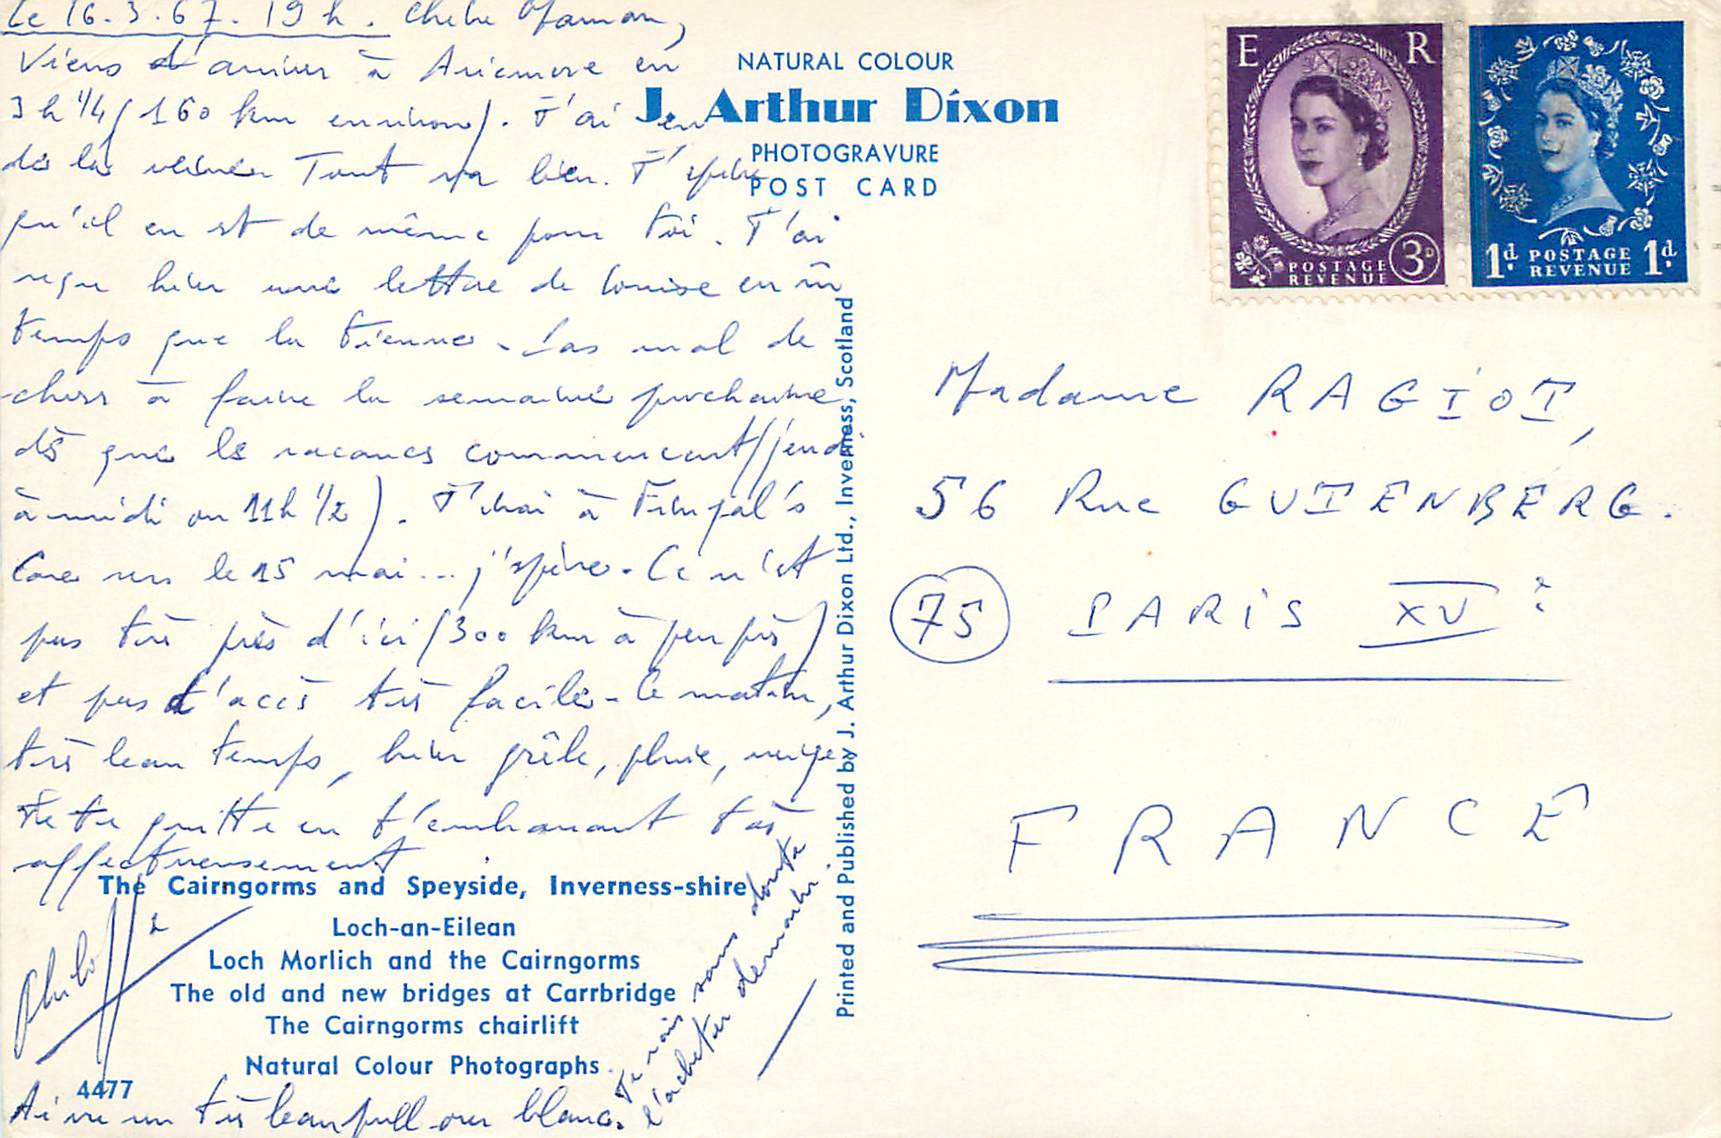 Le 16.3.67. 19 h. Chère Maman,
Viens d'arriver à Aviemore en
3 h 1/4 (160 km environ). J'ai eu
de la veine. Tout va bien. J'espère
qu'il en est de même pour toi. J'ai
reçu hier une lettre de Louise en m̄
temps que la tienne. Pas mal de
choses à faire la semaine prochaine
dès que les vacances commencent (jeudi
à midi ou 11h 1/2). J'irai à Fingal's
Cave vers le 15 mai... j'espère. Ce n'est
pas très près d'ici (300 km à peu près)
et pas d'accès très facile. Ce matin,
très beau temps, hier grêle, pluie, neige
Je te quitte en t'embrassant très
affectueusement
Ai vu un très beau pull over blanc.
Je vais sans doute
l'acheter demain.
NATURAL COLOUR
J. Arthur Dixon
PHOTOGRAVURE
POST CARD
The Cairngorms and Speyside, Inverness-shire
Loch-an-Eilean
Loch Morlich and the Cairngorms
The old and new bridges at Carrbridge
The Cairngorms chairlift
Natural Colour Photographs
4477
Printed and Published by J. Arthur Dixon Ltd., Inverness, Scotland
E R
POSTAGE
REVENUE
3D
1d. POSTAGE REVENUE 1d.
Madame RAGIOT,
56 Rue GUTENBERG.
75 PARIS XVe
FRANCE